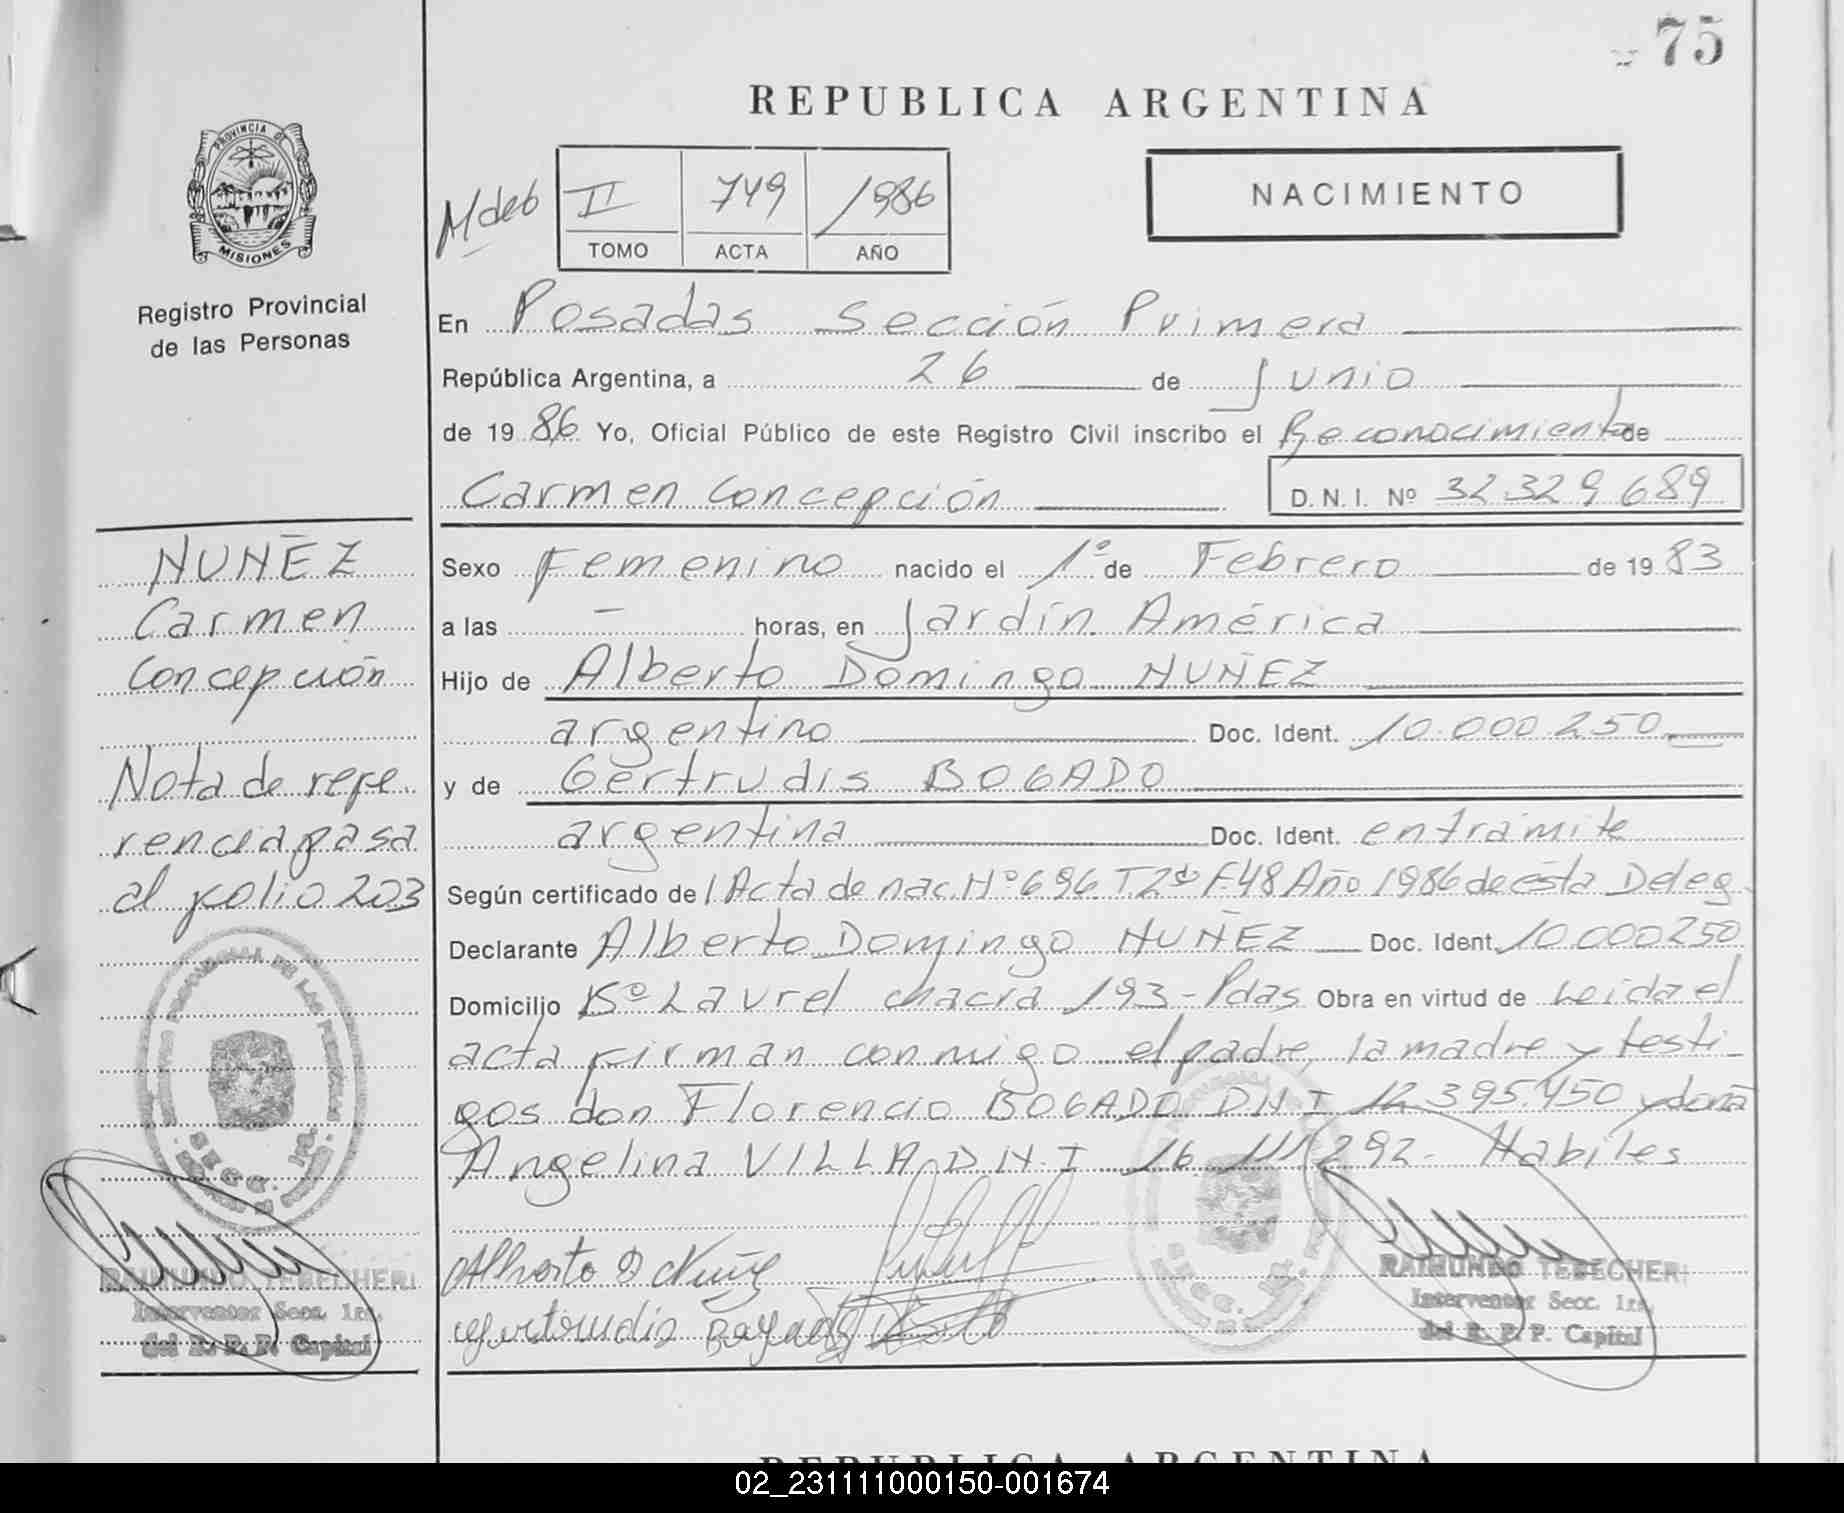 75
REPUBLICA ARGENTINA
PROVINCIA DE
MISIONES
Registro Provincial
de las Personas
II 749 1986
TOMO ACTA AÑO
NACIMIENTO
En Posadas Sección Primera
República Argentina, a 26 de Junio
de 1986 Yo, Oficial Público de este Registro Civil inscribo el Reconocimiento de
Carmen Concepción D.N.I. Nº 32329689
NUÑEZ
Carmen
Concepción
Nota de refe
rencia pasa
al folio 203
Sexo Femenino nacido el 1º de Febrero de 1983
a las – horas, en Jardín América
Hijo de Alberto Domingo NUÑEZ
argentino Doc. Ident. 10.000.250
y de Gertrudis BOGADO
argentina Doc. Ident. en trámite
Según certificado de Acta de nac. Nº 696 T.2º F.48 Año 1986 de ésta Deleg.
Declarante Alberto Domingo NUÑEZ Doc. Ident. 10.000250
Domicilio Bº Laurel chacra 193 - Pdas Obra en virtud de Leida el
acta firman conmigo el padre, la madre y testi-
gos don Florencio BOGADO D.N.I 12.395.450 y doña
Angelina VILLA D.N.I 16.111.292. Habiles
SECC. 1ra.
Alberto D Nuñez
Gertrudis Bogado
RAIMUNDO TEBECHERI
Interventor Secc. 1ra.
del R. P. P. Capital
SECC. 1ra.
RAIMUNDO TEBECHERI
Interventor Secc. 1ra.
del R. P. P. Capital
REPUBLICA ARGENTINA
02_231111000150-001674